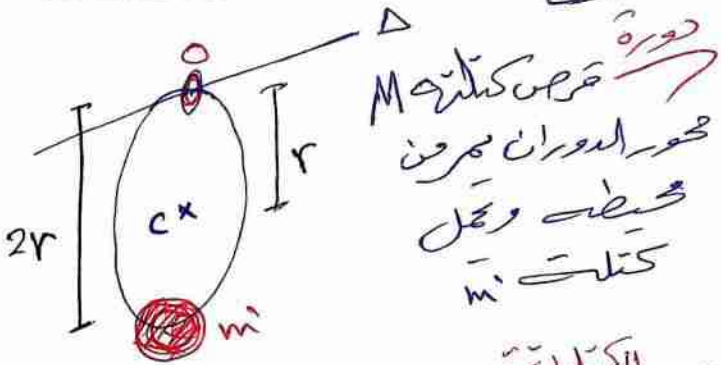 دورة
Δ
O
قرص كتلته M
محور الدوران يمر من
محيطه ويحمل
كتلة m'
r
c
2r
m'